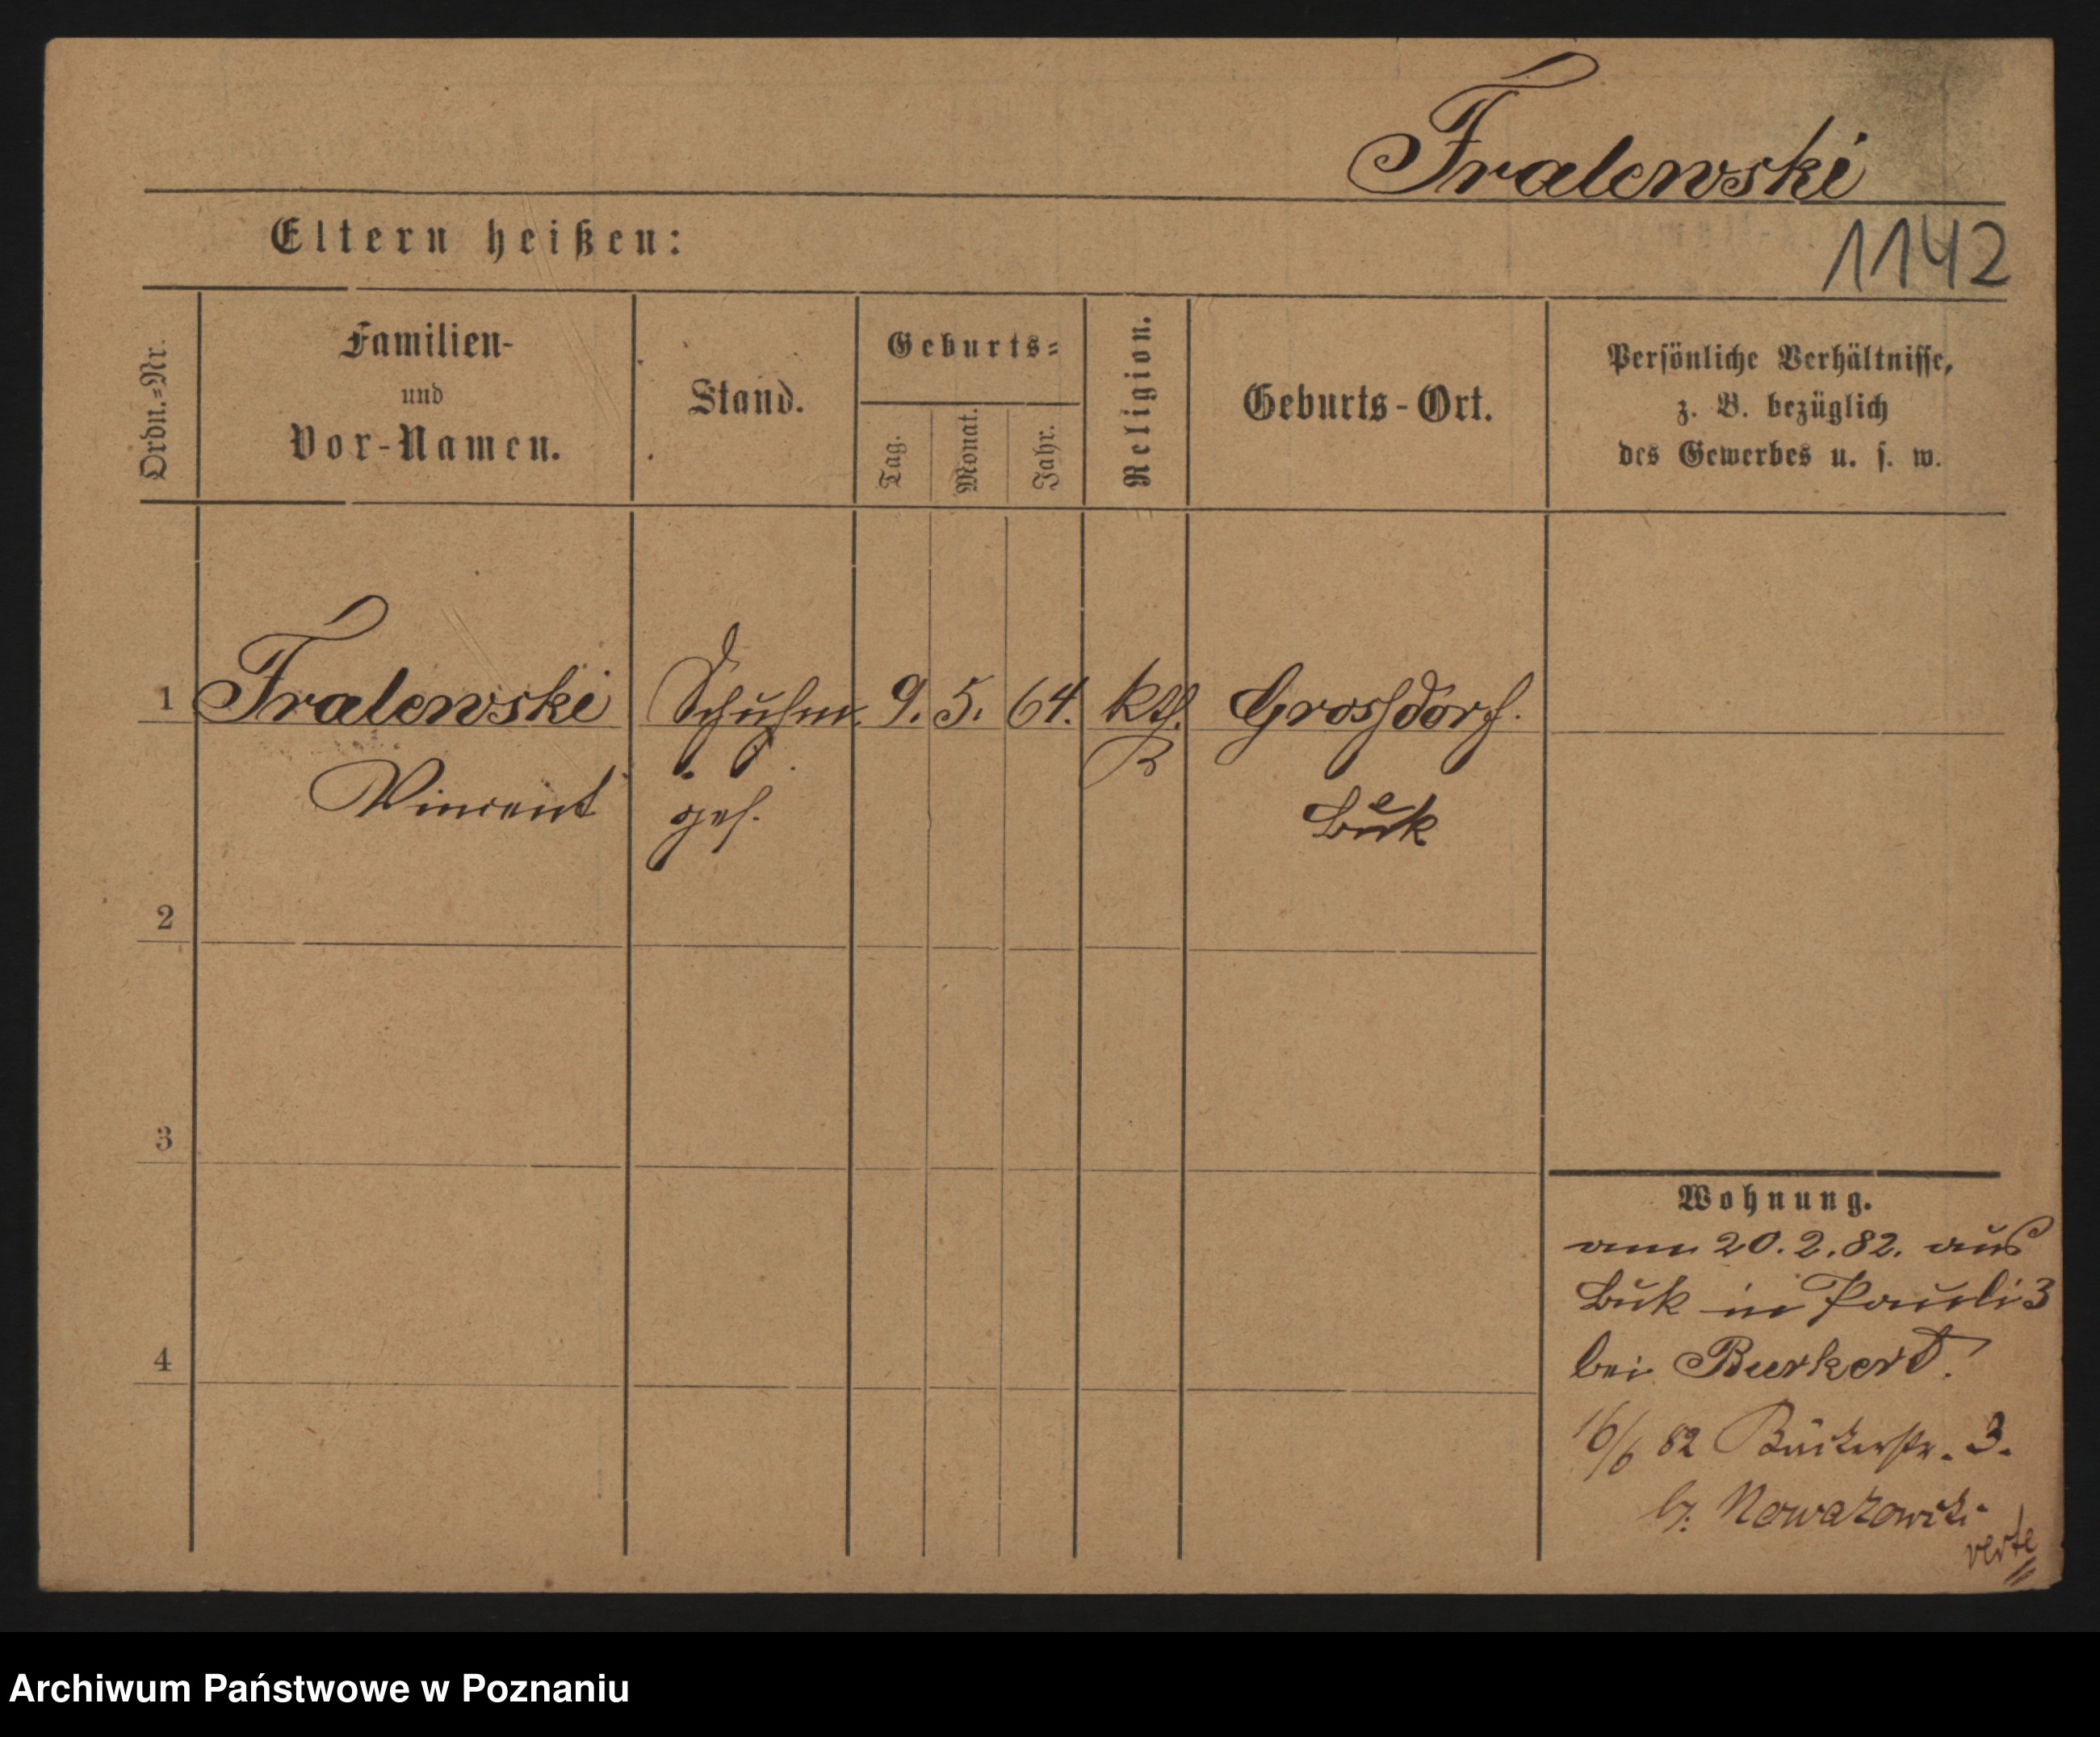 Fralewski
Eltern heißen:
1142
Ordn.=Nr.
Familien-
und
Vor-Namen.
Stand.
Geburts=
Tag.
Monat.
Jahr.
Religion.
Geburts-Ort.
Persönliche Verhältnisse,
z. B. bezüglich
des Gewerbes u. s. w.
1 Fralewski Schuhm. 9. 5. 64. kth. Grossdorf.
Vincent ges. Buk
2
3
4
Wohnung.
am 20.2.82. aus
Buk in Pauli 3
bei Burkert.
16/6 82 Bäckerstr. 3.
b. Nowakowski
verte
Archiwum Państwowe w Poznaniu